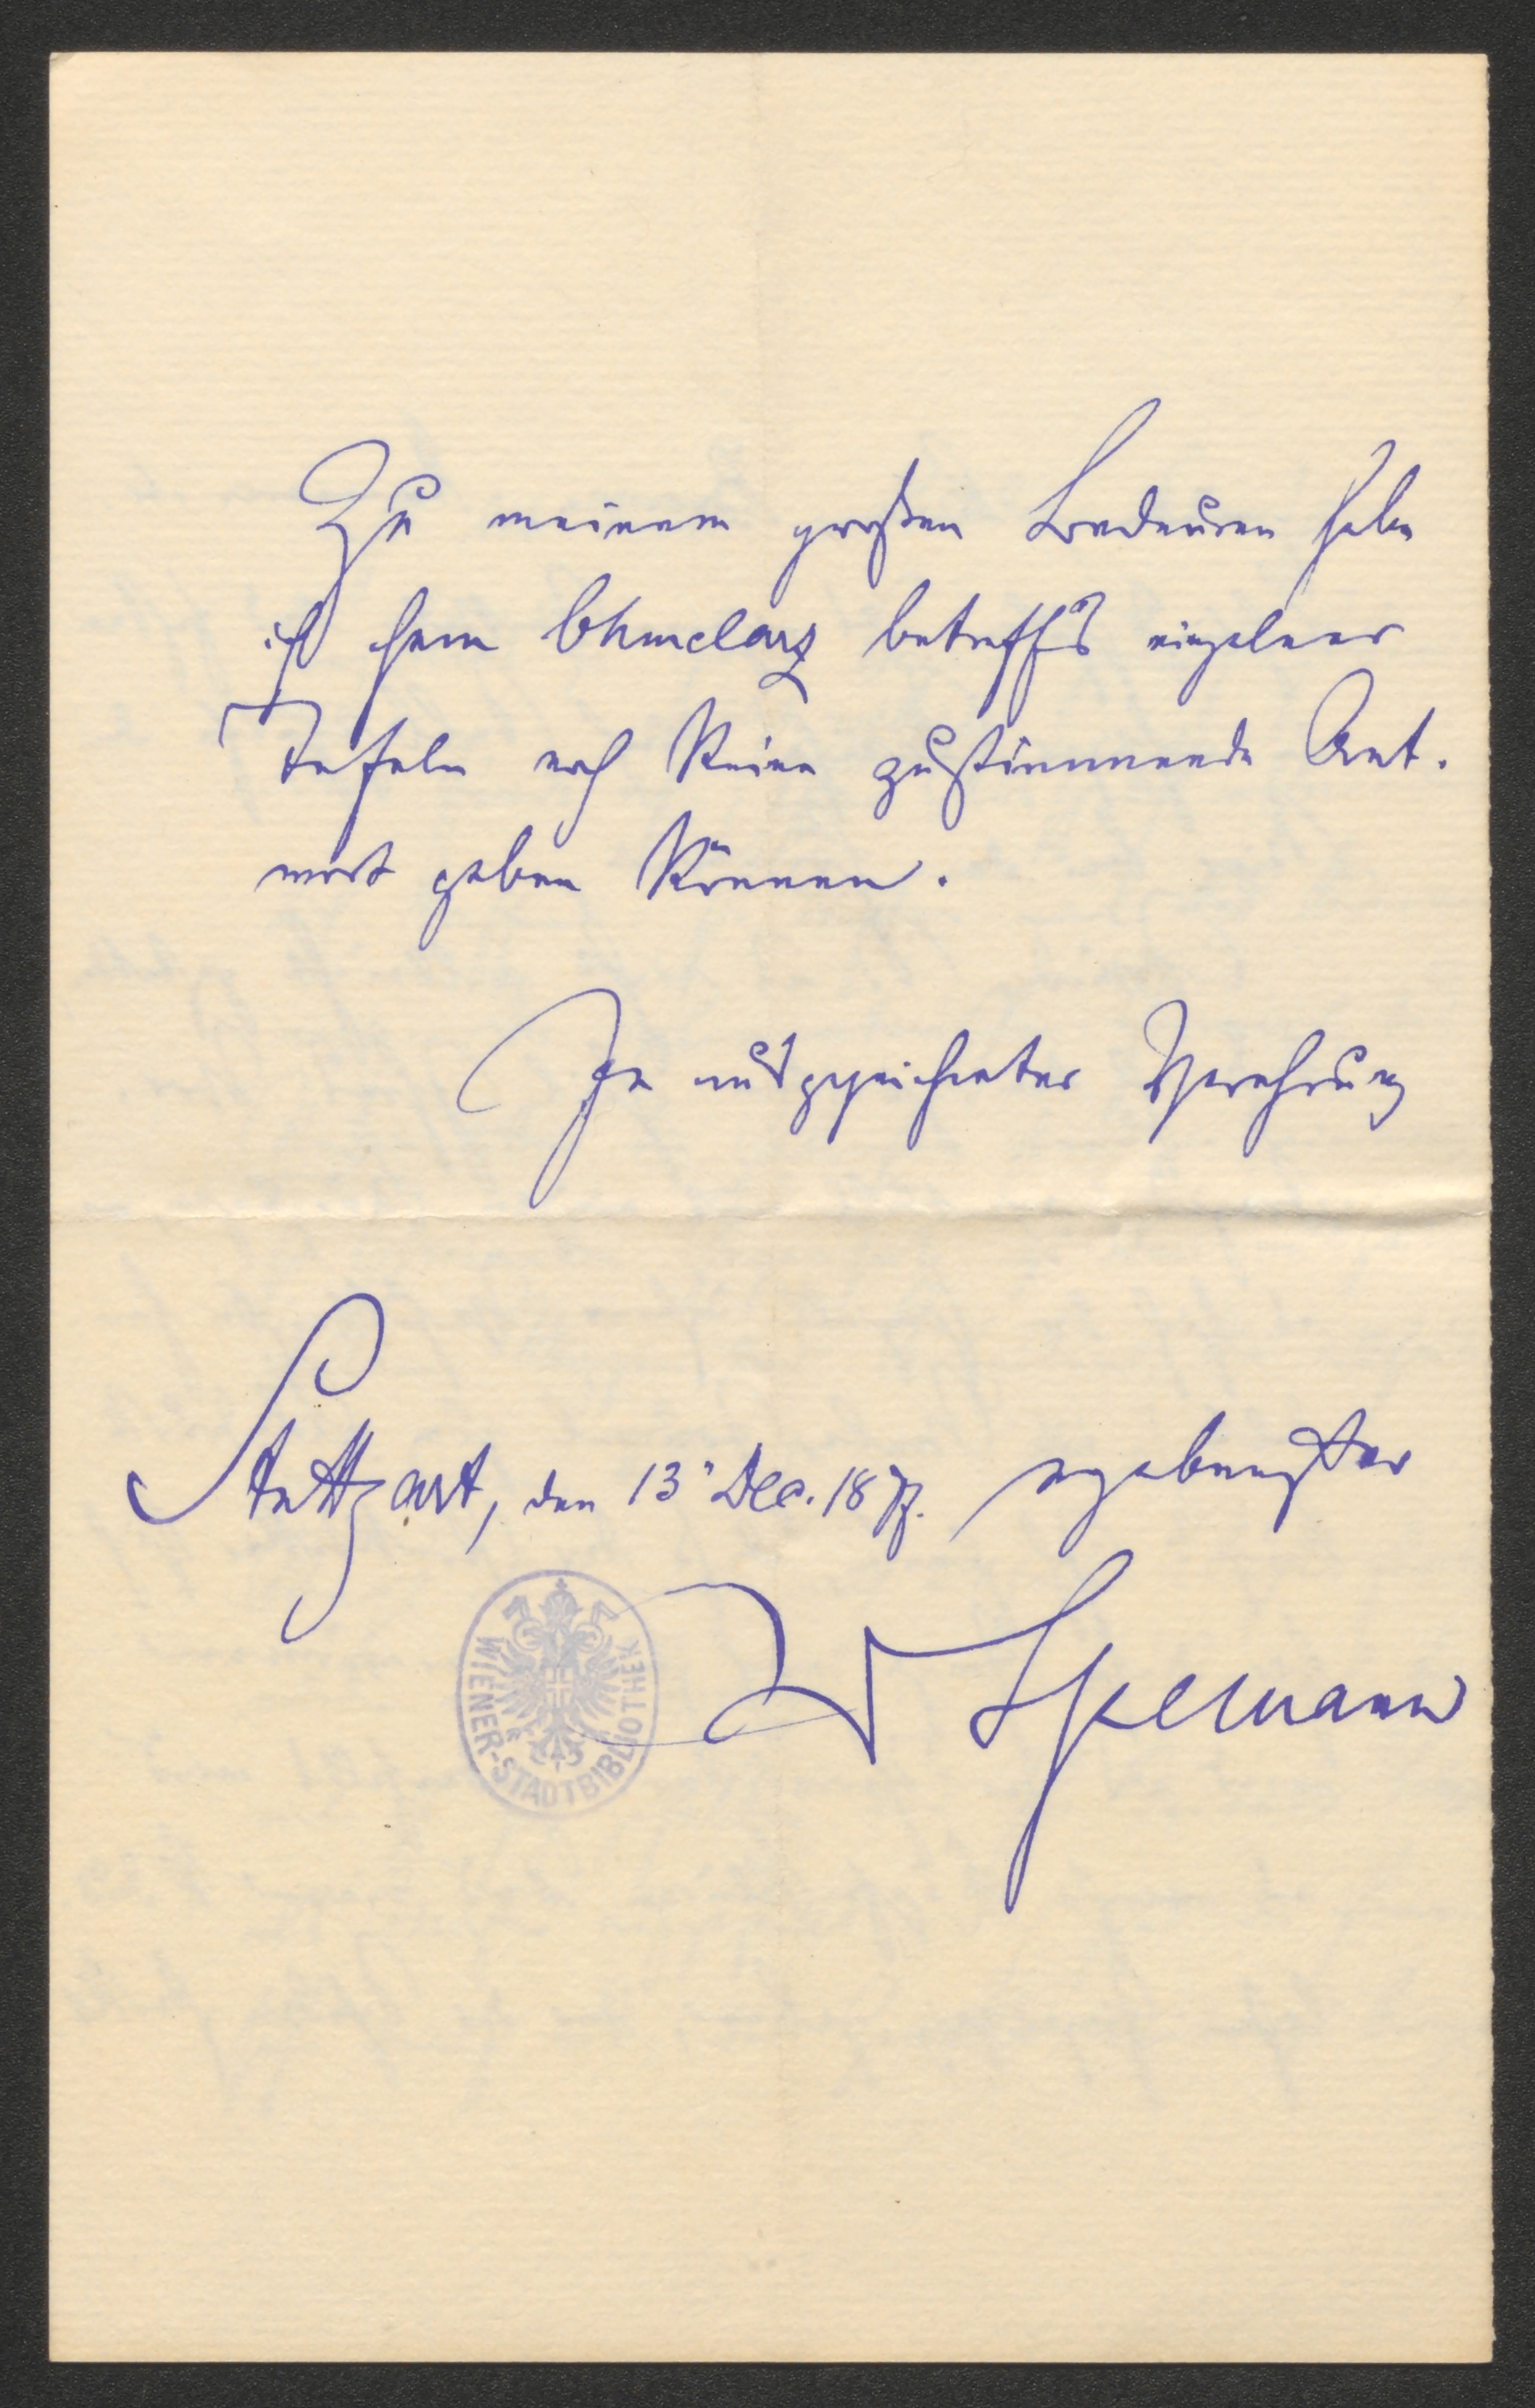 Zu meinem großen Bedauern habe
ich Herrn Chmelarz betreffs einzelner
Tafeln noch keine zustimmende Ant-
wort geben können.
In ausgezeichneter Verehrung
Stuttgart, den 13" Dec. 1877. ergebenster
W Spemann
WIENER-STADTBIBLIOTHEK